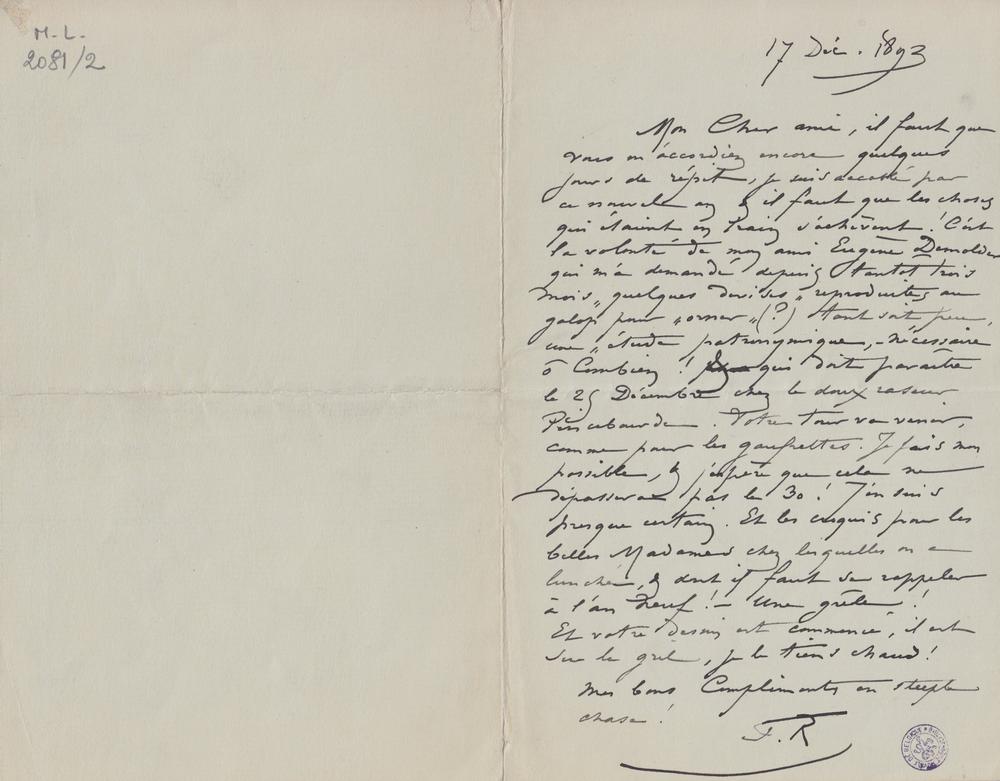 M.-L.
2081/2
17 Déc. 1893
Mon Cher ami, il faut que
vous m'accordiez encore quelques
jours de répit, je suis accablé par
ce nouvel an & il faut que les choses
qui étaient en train s'achèvent! C'est
la volonté de mon ami Eugène Demolder
qui m'a demandé depuis tantot trois
mois „quelques devises„ reproduites au
galop pour „orner„ (?) tant soit peu,
une „étude patronymique, - nécessaire
ô Combien! qui doit paraître
le 25 Décembre chez le doux raseur
Pincebourde. Votre tour va venir,
comme pour les gaufrettes. Je fais mon
possible, & j'espère que cela ne
dépassera pas le 30! J'en suis
presque certain. Et les croquis pour les
belles Madames chez lesquelles on a
lunché, & dont il faut se rappeler
à l'an neuf! - Une grêle!
Et votre dessin est commencé, il est
sur le gril, je le tiens chaud!
Mes bons Compliments en steeple
chase!
F. R